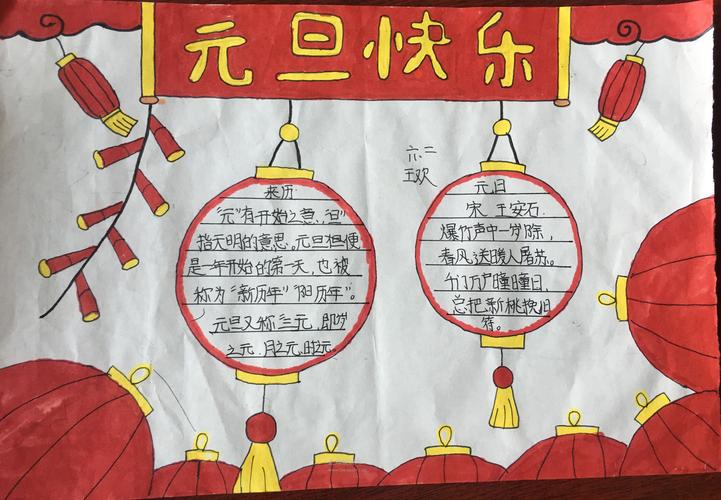 元旦快乐
六.二
王欢
来历
“元”有开始之意,“旦”
指天明的意思。元旦担便
是一年开始的第一天,也被
称为“新历年”“阳历年”。
元旦又称“三元,即岁
之元,月之元,时之元。
元日
宋 王安石
爆竹声中一岁除,
春风送暖人屠苏。
千门万户瞳瞳日,
总把新桃换旧
符。